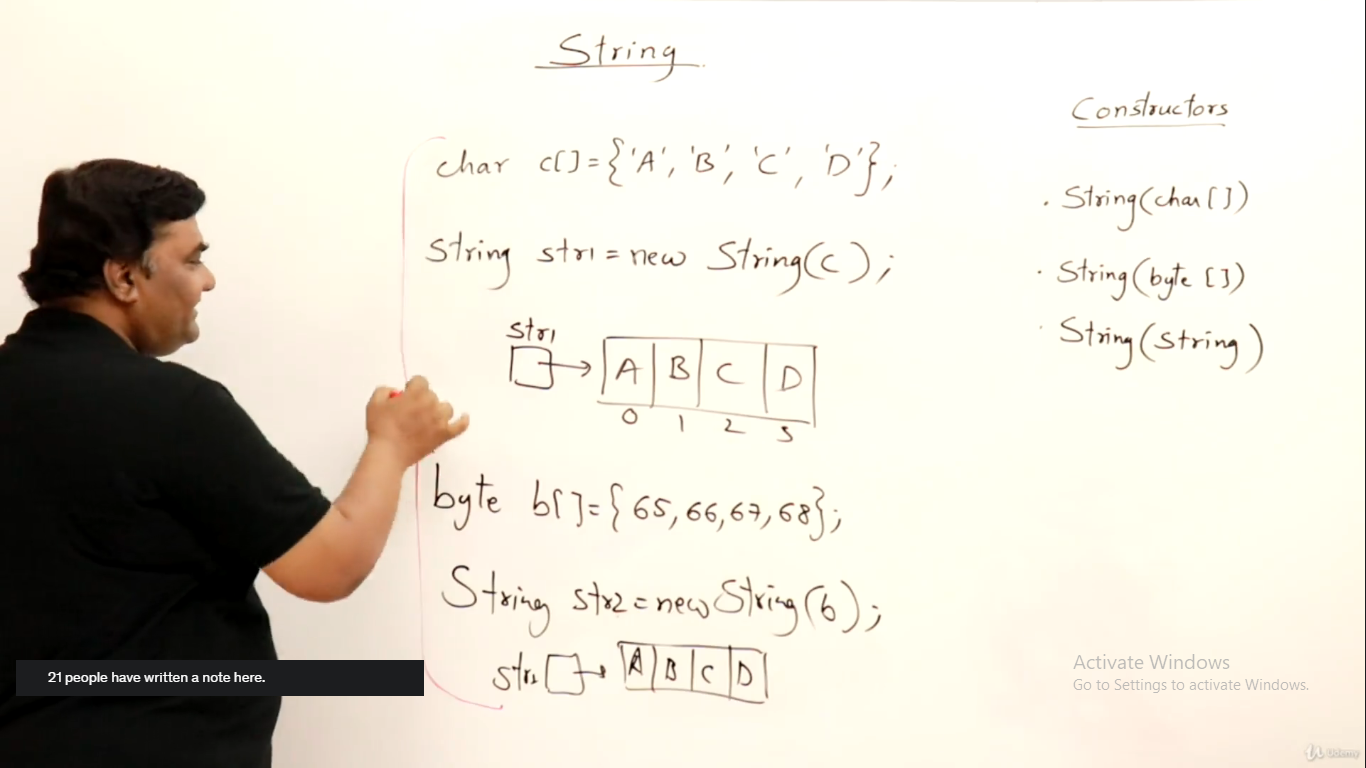 String
char c[]={'A', 'B', 'C', 'D'};
String str1 = new String(c);
str1
A B C D
0 1 2 3
byte b[]={65,66,67,68};
String str2 = new String(b);
str2
A B C D
Constructors
. String(char[])
. String(byte [])
. String(String)
21 people have written a note here.
Activate Windows
Go to Settings to activate Windows.
Udemy